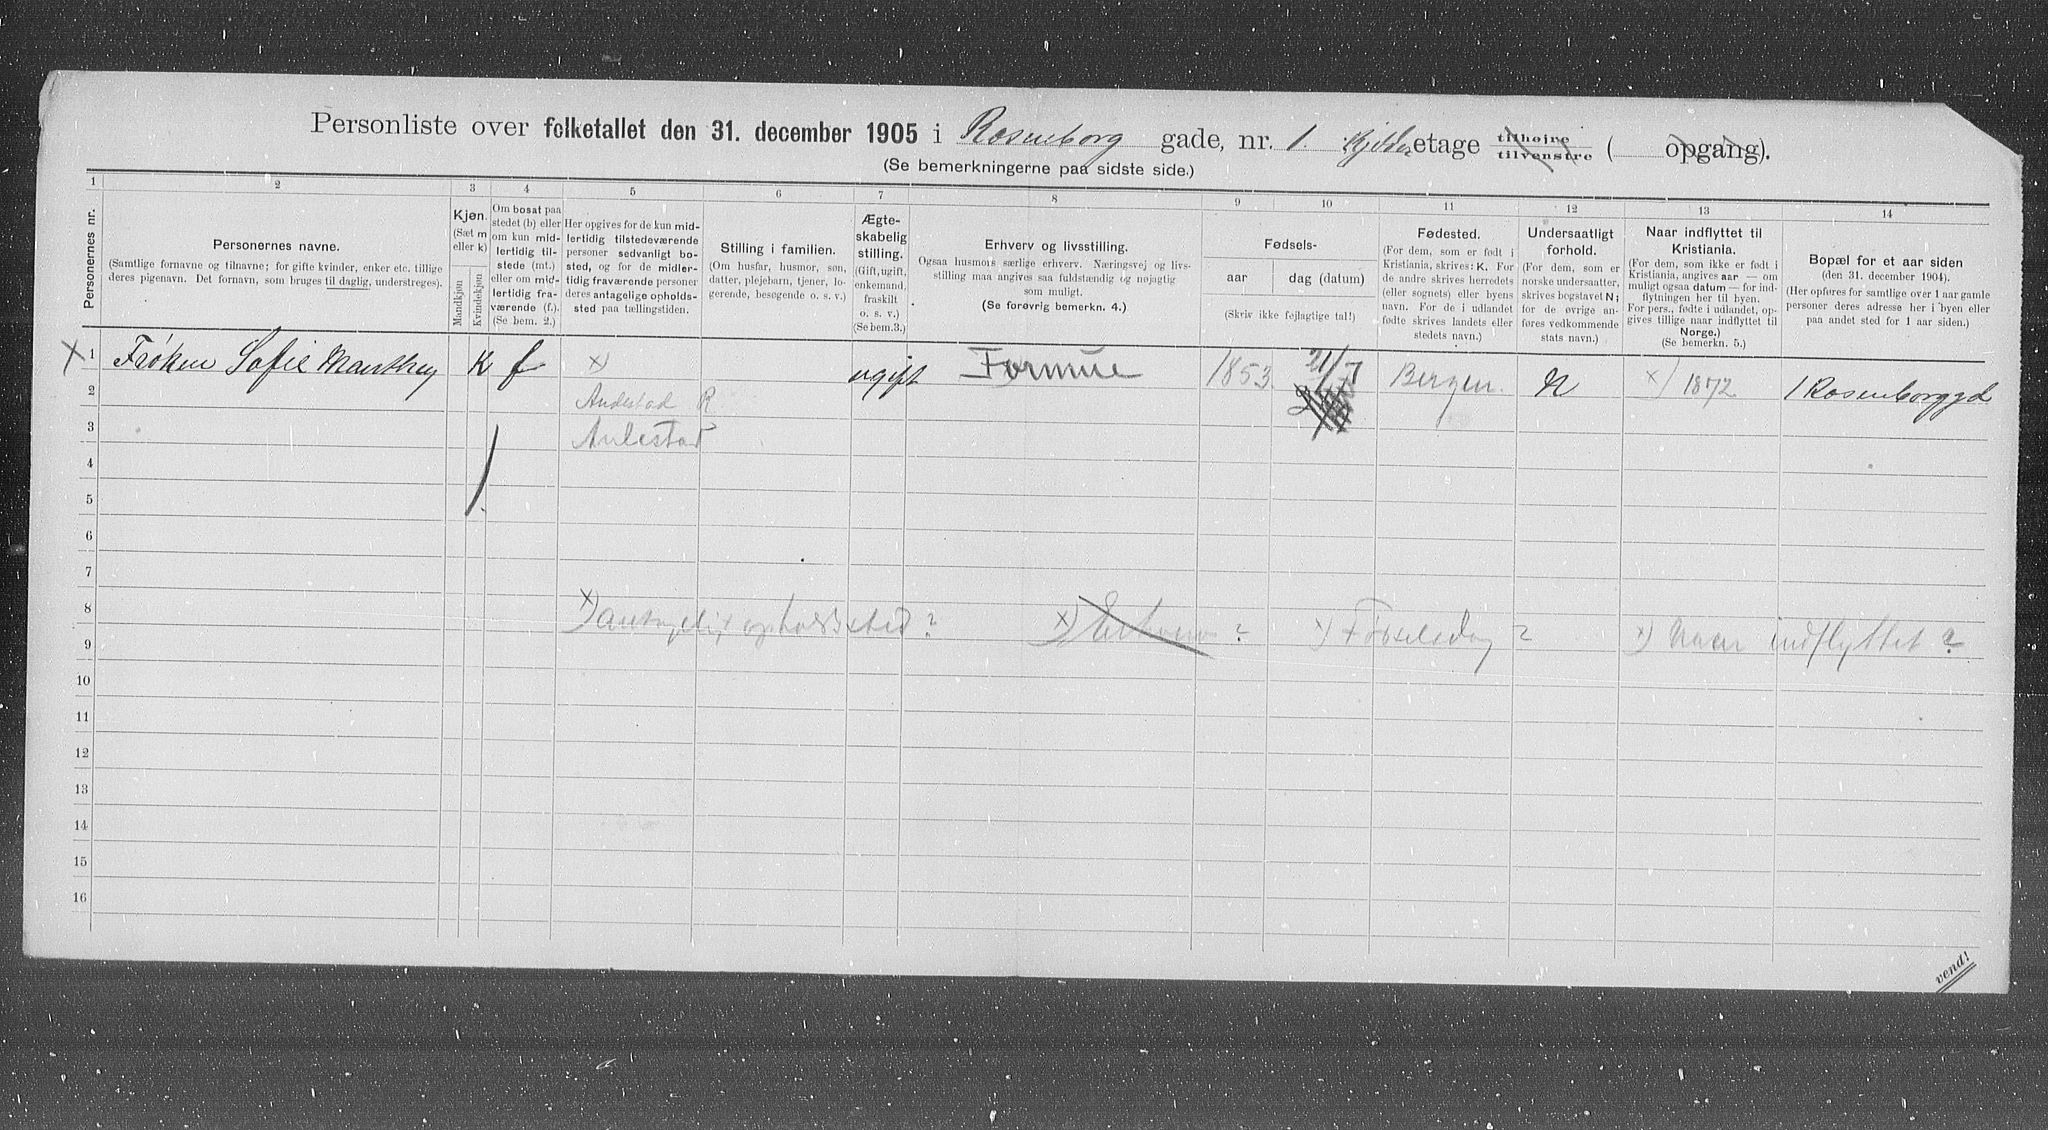 Personliste over folketallet den 31. december 1905 i Rosenborg gade, nr. 1. Kjelder etage tilhøjre tilvenstre ( opgang).
(Se bemerkningerne paa sidste side.)
1 2 3 4 5 6 7 8 9 10 11 12 13 14
Personernes nr.
Personernes navne.
(Samtlige fornavne og tilnavne; for gifte kvinder, enker etc. tillige
deres pigenavn. Det fornavn, som bruges til daglig, understreges).
Kjøn.
(Sæt m
eller k)
Mandkjøn
Kvindekjøn
Om bosat paa
stedet (b) eller
om kun mid-
lertidig til-
stede (mt.)
eller om mid-
lertidig fra-
værende (f.).
(Se bem. 2.)
Her opgives for de kun mid-
lertidig tilstedeværende
personer sedvanligt bo-
sted, og for de midler-
tidig fraværende personer
deres antagelige opholds-
sted paa tællingstiden.
Stilling i familien.
(Om husfar, husmor, søn,
datter, plejebarn, tjener, lo-
gerende, besøgende o. s. v.)
Ægte-
skabelig
stilling.
(Gift, ugift,
enkemand,
fraskilt
o. s. v.)
(Se bem. 3.)
Erhverv og livsstilling.
Ogsaa husmors særlige erhverv. Næringsvej og livs-
stilling maa angives saa fuldstændig og nøjagtig
som muligt.
(Se forøvrig bemerkn. 4.)
Fødsels-
aar dag (datum)
(Skriv ikke fejlagtige tal!)
Fødested.
(For dem, som er født i
Kristiania, skrives: K. For
de andre skrives herredets
(eller sognets) eller byens
navn. For de i udlandet
fødte skrives landets eller
stedets navn.)
Undersaatligt
forhold.
(For dem, som er
norske undersaatter,
skrives bogstavet N;
for de øvrige an-
føres vedkommende
stats navn.)
Naar indflyttet til
Kristiania.
(For dem, som ikke er født i
Kristiania, angives aar — om
muligt ogsaa datum — for ind-
flytningen her til byen.
For pers., fødte i udlandet, op-
gives tillige naar indflyttet til
Norge.)
(Se bemerkn. 5.)
Bopæl for et aar siden
(den 31. december 1904).
(Her opføres for samtlige over 1 aar gamle
personer deres adresse her i byen eller
paa andet sted for 1 aar siden.)
X 1 Frøken Sofie Manthey K f x) ugift Formue 1853 21/7 Bergen. N x) 1872 1 Rosenborggd
2 Andestad R
3 Aulestad
4
5
6
7
8 x) antagelig opholdssted? x) Erhverv? x) Fødselsdag? x) Naar indflyttet?
9
10
11
12
13
14
15
16
vend!